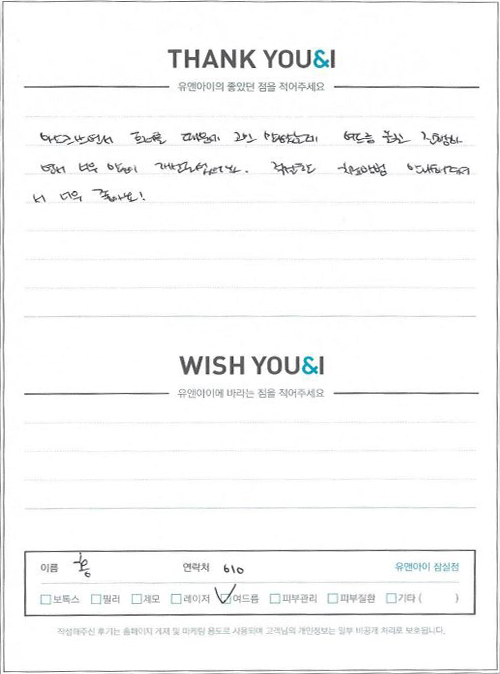 THANK YOU&I
유앤아이의 좋았던 점을 적어주세요
때문에 고민 많았는데 여드름
너무 많이 치료방법
서 너무 좋아요!
WISH YOU&I
유앤아이에 바라는 점을 적어주세요
이름 홍 연락처 610 유앤아이 잠실점
보톡스 필러 제모 레이저 여드름 피부관리 피부질환 기타 ( )
작성해주신 후기는 홈페이지 게재 및 마케팅 용도로 사용되며 고객님의 개인정보는 일부 비공개 처리로 보호됩니다.